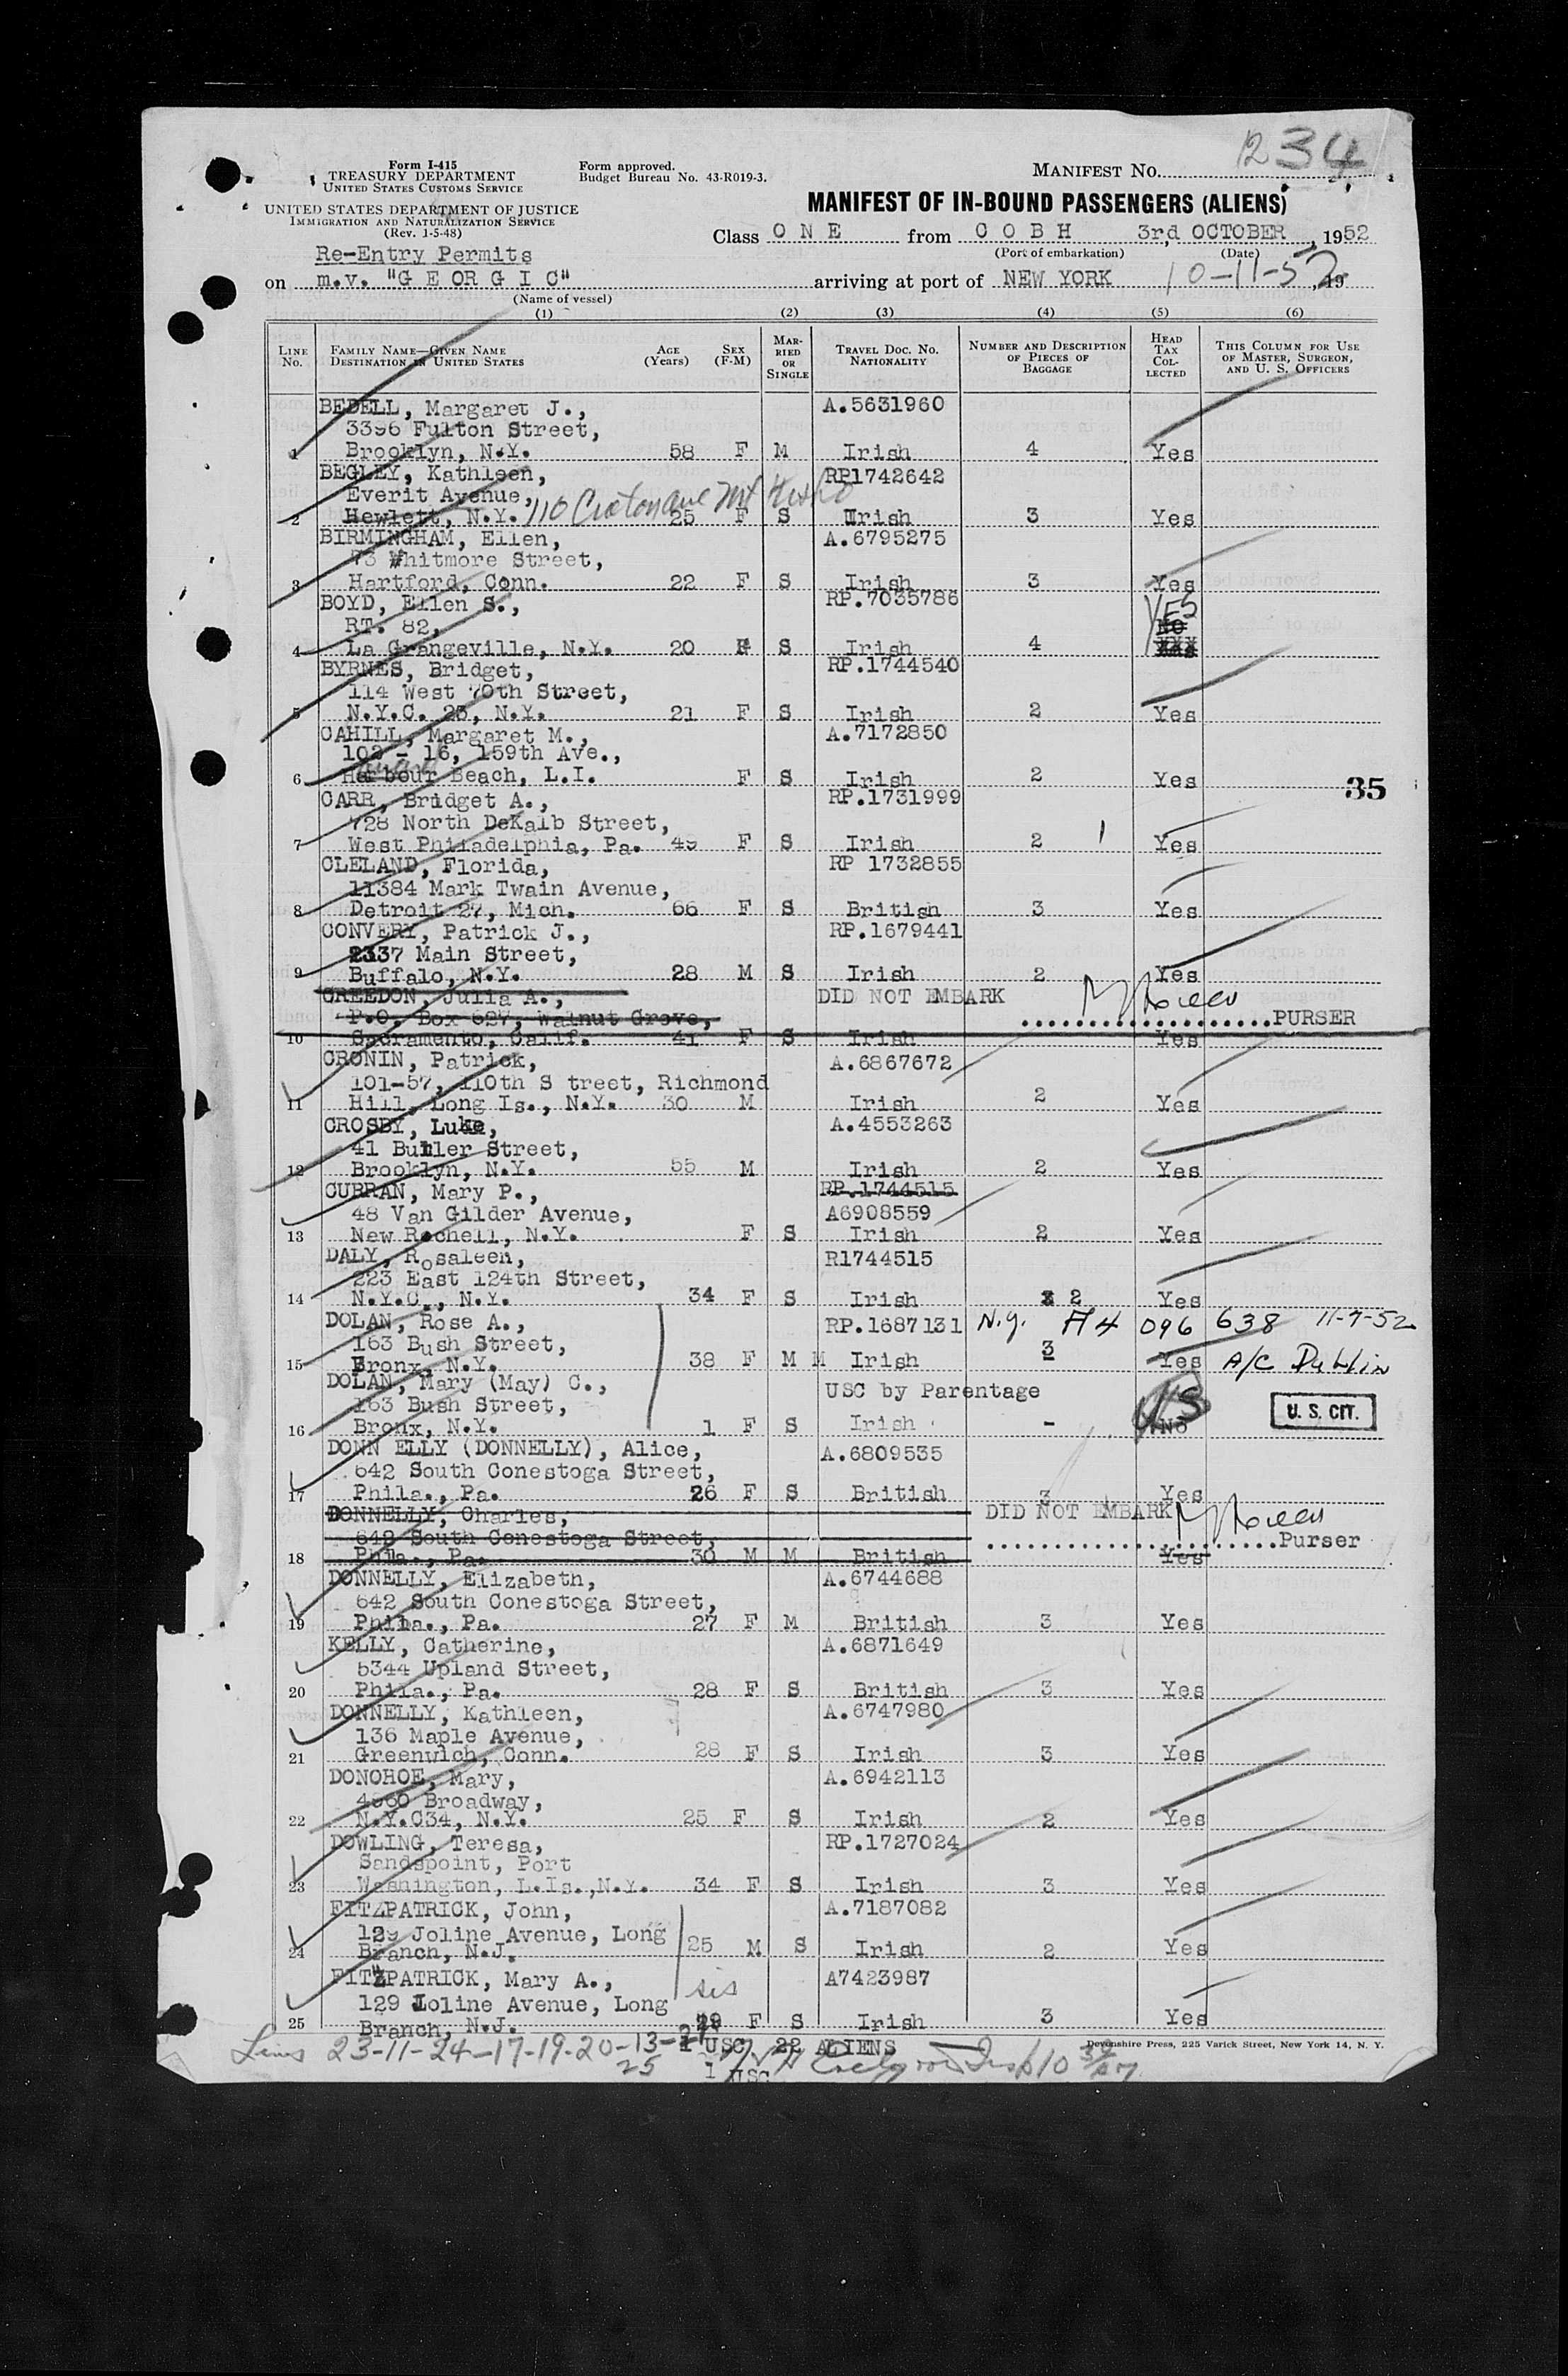 234
Form I-415
TREASURY DEPARTMENT
UNITED STATES CUSTOMS SERVICE
Form approved.
Budget Bureau No. 43-R019-3.
MANIFEST No.
UNITED STATES DEPARTMENT OF JUSTICE
IMMIGRATION AND NATURALIZATION SERVICE
(Rev. 1-5-48)
MANIFEST OF IN-BOUND PASSENGERS (ALIENS)
Class O N E from C O B H 3rd, OCTOBER, 1952
(Port of embarkation) (Date)
Re-Entry Permits
on m.v. "G E OR G I C" arriving at port of NEW YORK 10-11-52, 19
(Name of vessel)
(1) (2) (3) (4) (5) (6)
LINE No. FAMILY NAME—GIVEN NAME DESTINATION IN UNITED STATES AGE (Years) SEX (F-M) MARRIED OR SINGLE TRAVEL DOC. NO. NATIONALITY NUMBER AND DESCRIPTION OF PIECES OF BAGGAGE HEAD TAX COLLECTED THIS COLUMN FOR USE OF MASTER, SURGEON, AND U. S. OFFICERS
BEDELL, Margaret J., A.5631960
3396 Fulton Street,
1 Brooklyn, N.Y. 58 F M Irish 4 Yes
BEGLEY, Kathleen, RP1742642
Everit Avenue, 110 Croton ave Mt Kisko
2 Hewlett, N.Y. 25 F S Irish 3 Yes
BIRMINGHAM, Ellen, A.6795275
73 Whitmore Street,
3 Hartford, Conn. 22 F S Irish 3 Yes
BOYD, Ellen S., RP.7035786 YES
RT. 82, NO
4 La Grangeville, N.Y. 20 F S Irish 4
BYRNES, Bridget, RP.1744540
114 West 70th Street,
5 N.Y.C. 23, N.Y. 21 F S Irish 2 Yes
CAHILL, Margaret M., A.7172850
102 - 16, 159th Ave.,
6 Harbour Beach, L.I. F S Irish 2 Yes
35
CARR, Bridget A., RP.1731999
728 North DeKalb Street,
7 West Philadelphia, Pa. 49 F S Irish 2 Yes
CLELAND, Florida, RP 1732855
11384 Mark Twain Avenue,
8 Detroit 27, Mich. 66 F S British 3 Yes
CONVERY, Patrick J., RP.1679441
2337 Main Street,
9 Buffalo, N.Y. 28 M S Irish 2 Yes
CREEDON, Julia A., DID NOT EMBARK
P.O. Box 627, Walnut Grove, PURSER
10 Sacramento, Calif. 41 F S Irish Yes
CRONIN, Patrick, A.6867672
101-57, 110th S treet, Richmond
11 Hill, Long Is., N.Y. 30 M Irish 2 Yes
CROSBY, Luke, A.4553263
41 Butler Street,
12 Brooklyn, N.Y. 55 M Irish 2 Yes
CURRAN, Mary P., RP.1744515
48 Van Gilder Avenue, A6908559
13 New Rochell, N.Y. F S Irish 2 Yes
DALY, Rosaleen, R1744515
223 East 124th Street,
14 N.Y.C., N.Y. 34 F S Irish 2 Yes
DOLAN, Rose A., RP.1687131 N.y. A4 096 638 11-7-52
163 Bush Street,
15 Bronx, N.Y. 38 F M M Irish 3 Yes A/C Dublin
DOLAN, Mary (May) C., USC by Parentage
163 Bush Street, US U. S. CIT.
16 Bronx, N.Y. 1 F S Irish - No
DONN ELLY (DONNELLY), Alice, A.6809535
642 South Conestoga Street,
17 Phila., Pa. 26 F S British 3 Yes
DONNELLY, Charles, DID NOT EMBARK
642 South Conestoga Street, Purser
18 Phila., Pa. 30 M M British Yes
DONNELLY, Elizabeth, A.6744688
642 South Conestoga Street,
19 Phila., Pa. 27 F M British 3 Yes
KELLY, Catherine, A.6871649
5344 Upland Street,
20 Phila., Pa. 28 F S British 3 Yes
DONNELLY, Kathleen, A.6747980
136 Maple Avenue,
21 Greenwich, Conn. 28 F S Irish 3 Yes
DONOHOE, Mary, A.6942113
4960 Broadway,
22 N.Y.C34, N.Y. 25 F S Irish 2 Yes
DOWLING, Teresa, RP.1727024
Sandspoint, Port
23 Washington, L.Is.,N.Y. 34 F S Irish 3 Yes
FITZPATRICK, John, A.7187082
129 Joline Avenue, Long
24 Branch, N.J. 25 M S Irish 2 Yes
FITZPATRICK, Mary A., A7423987
129 Joline Avenue, Long sis
25 Branch, N.J. 29 F S Irish 3 Yes
Lines 23-11-24-17-19-20-13-21 1 USC 22 ALIENS Devonshire Press, 225 Varick Street, New York 14, N. Y.
25 1 USC